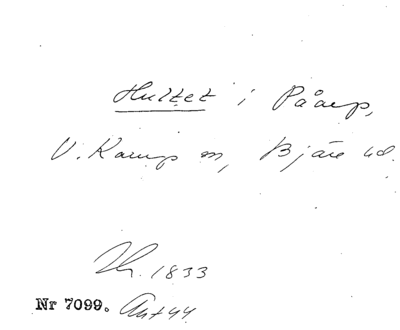 Hultet i Påarp,
V. Karup sn, Bjäre hd.
Th. 1833
Nr 7099. Ant 44